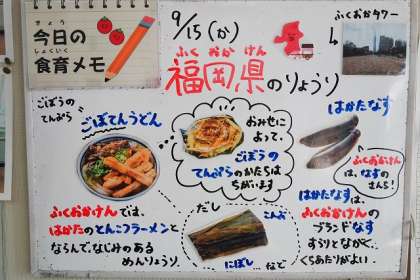 きょう
今日の
しょくいく
食育メモ
9/15(か)
ふくおかけん
福岡県のりょうり
ふくおかタワー
ごぼうの
てんぷら
ごぼてんうどん
おみせに
よって、
ごぼうの
てんぷらのかたちは
ちがいます
はかたなす
ふくおかけん
は、なすの
さんち!
ふくおかけんでは、
はかたのとんこつラーメンと
ならんで、なじみのある
めんりょうり。
だし
こんぶ
にぼし
など
はかたなす
は、
ふくおかけんの
ブランドなす
すらりとながく、
くちあたりがよい。